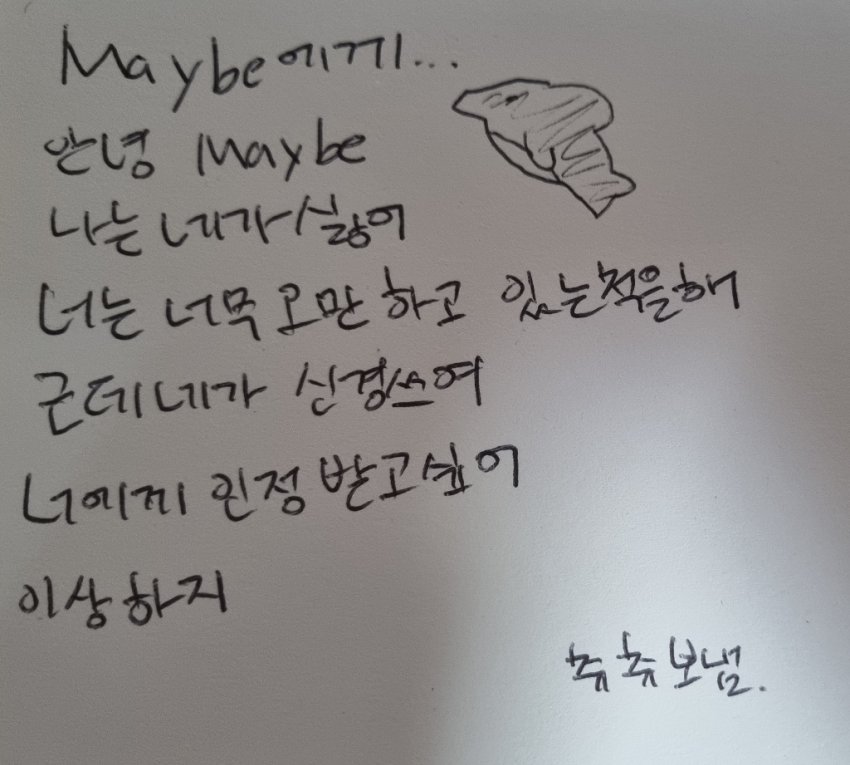 Maybe에게...
안녕 Maybe
나는 네가 싫어
너는 너무 오만하고 있는척을해
근데 네가 신경쓰여
너에게 인정 받고싶어
이상하지
츄츄 보냄.